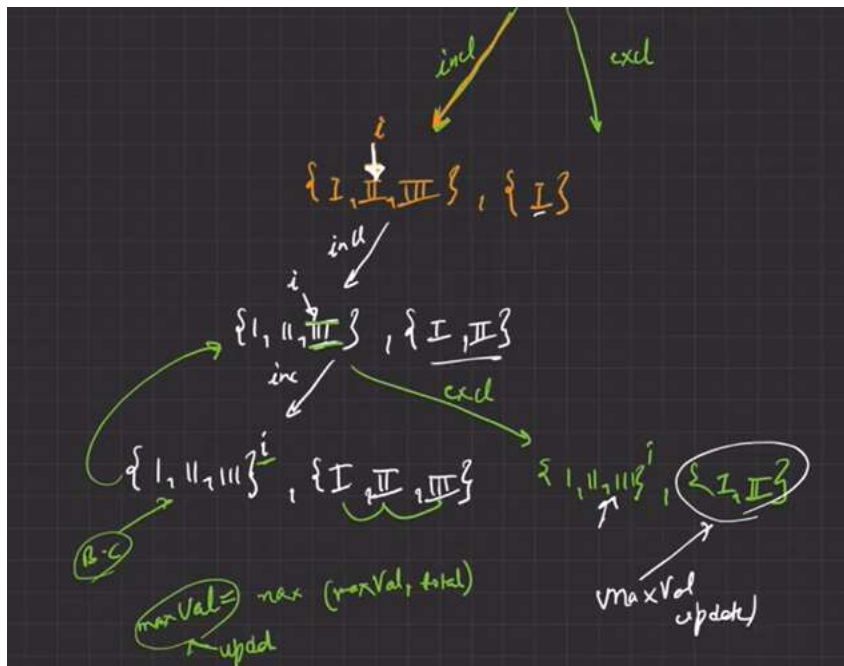 incl excl
i
{I, II, III}, {I}
incl
i
{I, II, III}, {I, II}
inc excl
{I, II, III} i, {I, II, III} {I, II, III} i, {I, II}
B.C
maxVal = max (maxVal, total) maxVal
updd update)